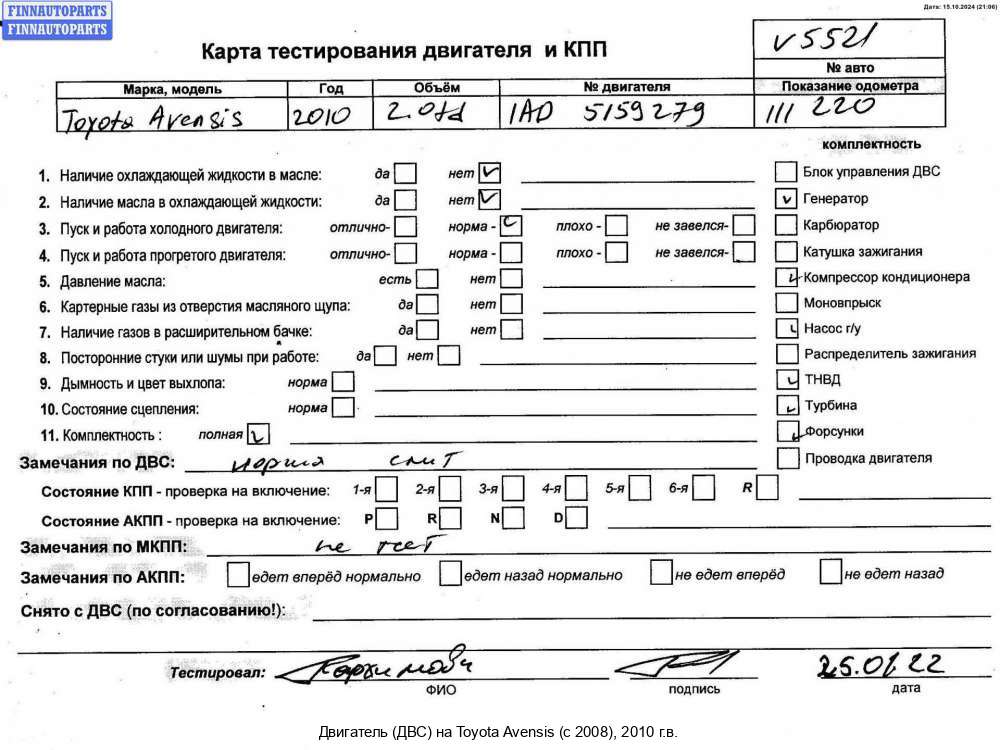 Дата: 15.10.2024 (21:06)
FINNAUTOPARTS
FINNAUTOPARTS
Карта тестирования двигателя и КПП
V5521
№ авто
Марка, модель Год Объём № двигателя Показание одометра
Toyota Avensis 2010 2.0td 1AD 5159279 111 220
комплектность
1. Наличие охлаждающей жидкости в масле: да нет Блок управления ДВС
2. Наличие масла в охлаждающей жидкости: да нет Генератор
3. Пуск и работа холодного двигателя: отлично- норма - плохо - не завелся- Карбюратор
4. Пуск и работа прогретого двигателя: отлично- норма - плохо - не завелся- Катушка зажигания
5. Давление масла: есть нет Компрессор кондиционера
6. Картерные газы из отверстия масляного щупа: да нет Моновпрыск
7. Наличие газов в расширительном бачке: да нет Насос г/у
8. Посторонние стуки или шумы при работе: да нет Распределитель зажигания
9. Дымность и цвет выхлопа: норма ТНВД
10. Состояние сцепления: норма Турбина
11. Комплектность : полная Форсунки
Замечания по ДВС: норма Проводка двигателя
Состояние КПП - проверка на включение: 1-я 2-я 3-я 4-я 5-я 6-я R
Состояние АКПП - проверка на включение: P R N D
Замечания по МКПП: не
Замечания по АКПП: едет вперёд нормально едет назад нормально не едет вперёд не едет назад
Снято с ДВС (по согласованию!):
Тестировал: 25.01.22
ФИО подпись дата
Двигатель (ДВС) на Toyota Avensis (с 2008), 2010 г.в.